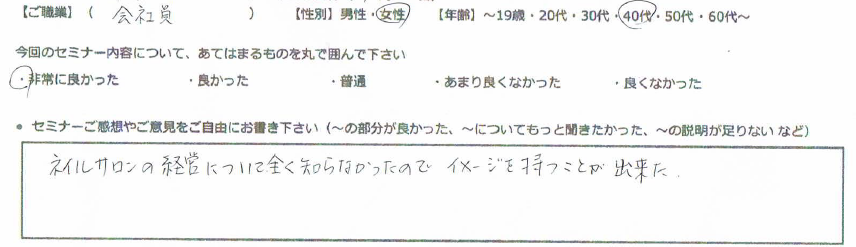 【ご職業】（ 会社員 ）【性別】男性・女性 【年齢】～19歳・20代・30代・40代・50代・60代～
今回のセミナー内容について、あてはまるものを丸で囲んで下さい
・非常に良かった ・良かった ・普通 ・あまり良くなかった ・良くなかった
● セミナーご感想やご意見をご自由にお書き下さい（～の部分が良かった、～についてもっと聞きたかった、～の説明が足りない など）
ネイルサロンの経営について全く知らなかったので イメージを持つことが 出来た.